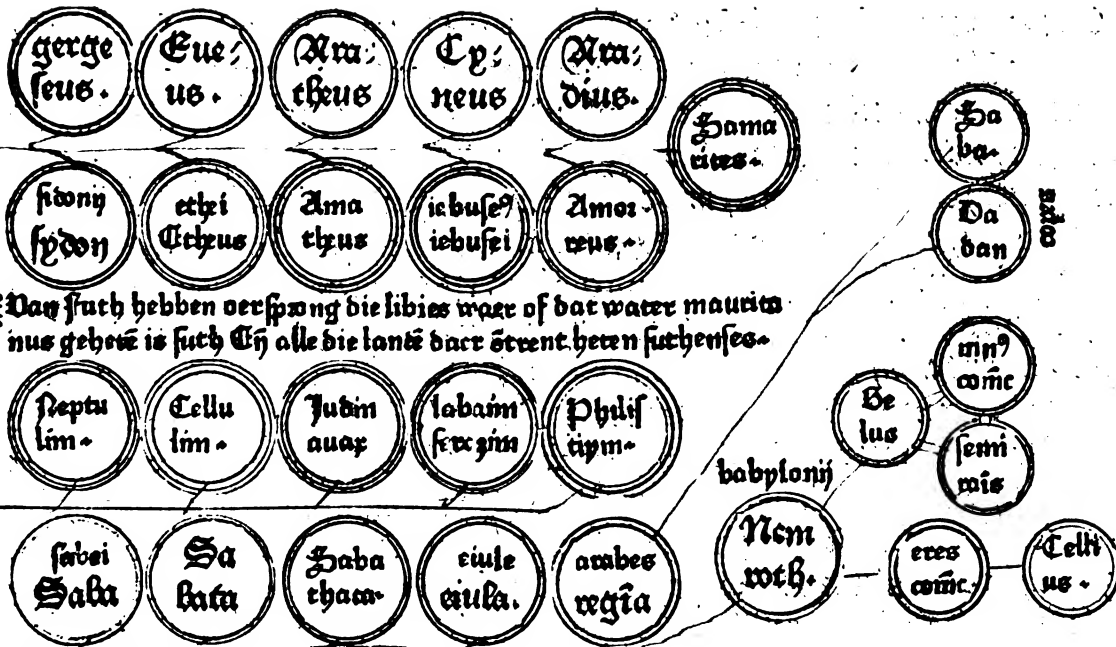 gerge
seus.
Eue⸗
us.
Ara⸗
theus
Cy⸗
neus
Ara⸗
dius.
Sama
rites.
Sa
ba.
Da
dan
sidonij
sydon
ethei
Etheus
Ama
theus
iebuseꝰ
iebusei
Amor
reus.
Van futh hebben oerspzong die libies waer of dat water maurita
nus gehetē is futh Eñ alle die lantē daer ōtrent heten futhenses.
Neptu
lim.
Cellu
lim.
Judin
auax
labaim
Philis
tiym.
Be
lus
comĉ
semi
babylonij
Nem
roth.
sabei
Saba
Sa
bata
Saba
thaca.
eiule
eiula.
arabes
regīa
eres
comĉ.
Celti
us.